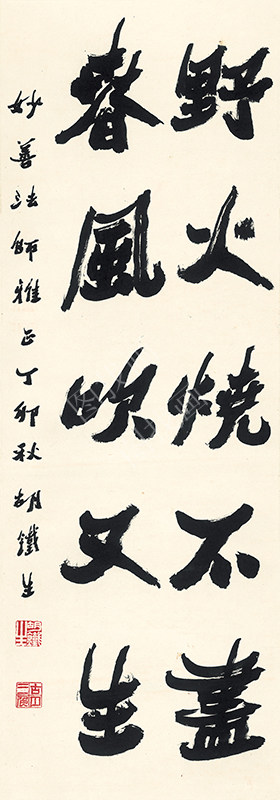 野火燒不盡
春風吹又生
妙善法師雅正丁卯秋胡鐵生